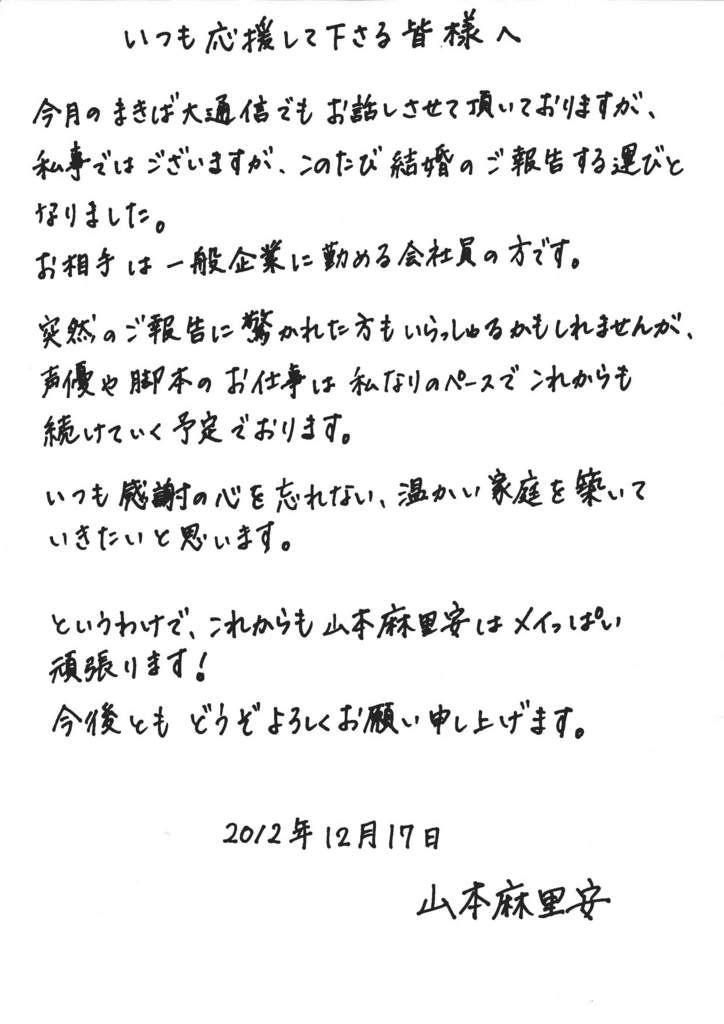 いつも応援して下さる皆様へ
今月のまきば大通信でもお話しさせて頂いておりますが、
私事ではございますが、このたび結婚のご報告する運びと
なりました。
お相手は一般企業に勤める会社員の方です。
突然のご報告に驚かれた方もいらっしゅるかもしれませんが、
声優や脚本のお仕事は私なりのペースでこれからも
続けていく予定でおります。
いつも感謝の心を忘れない、温かい家庭を築いて
いきたいと思います。
というわけで、これからも山本麻里安はメイっぱい
頑張ります!
今後ともどうぞよろしくお願い申し上げます。
2012年12月17日
山本麻里安